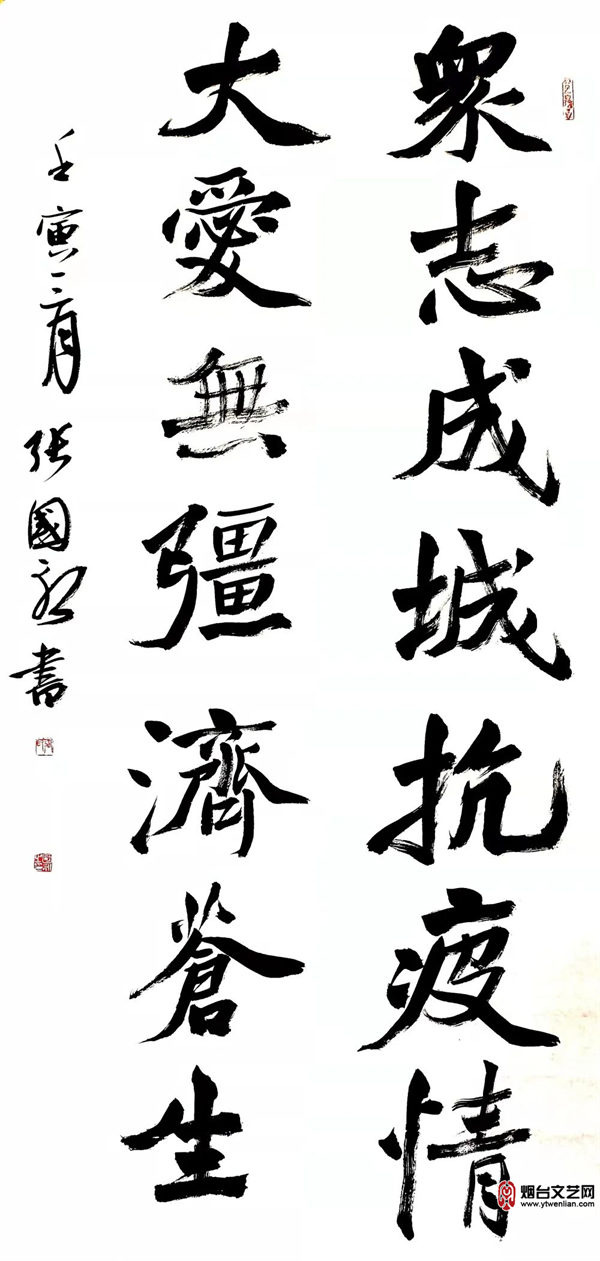 眾志成城抗疫情
大愛無彊濟蒼生
壬寅二月張國
書
烟台文艺网
www.ytwenlian.com